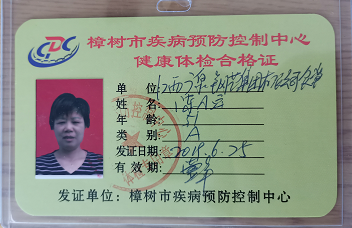 CDC
樟树市疾病预防控制中心
健康体检合格证
单位:江西
姓名:
年龄:
类别:A
发证日期:2015.6.25
有效期:壹年
发证单位:樟树市疾病预防控制中心